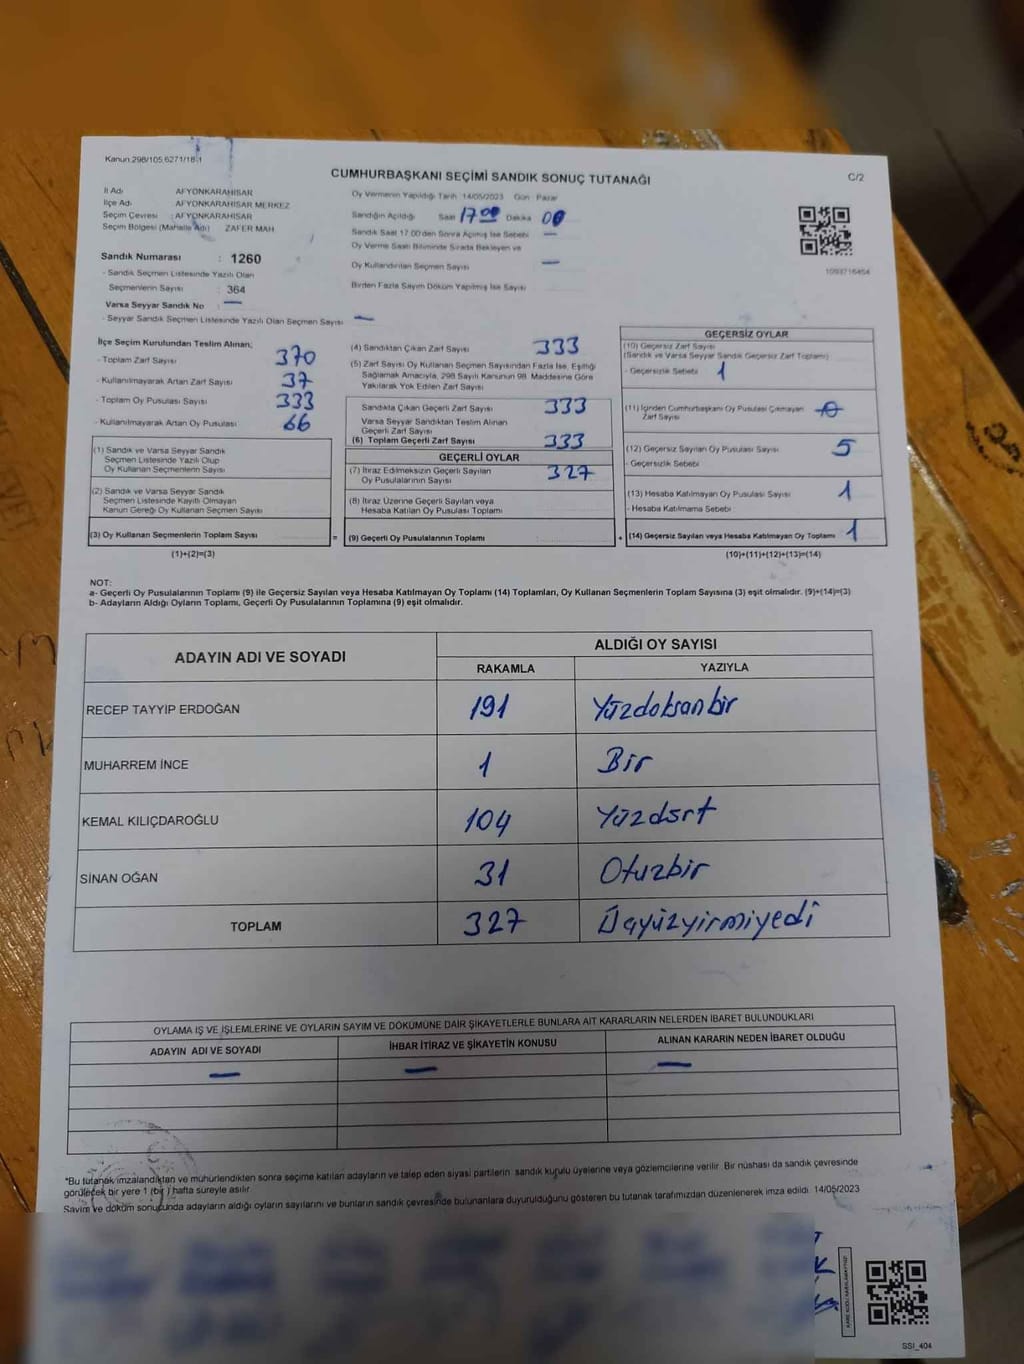 Kanun:298/105,6271/18-1
CUMHURBAŞKANI SEÇİMİ SANDIK SONUÇ TUTANAĞI
C/2
İl Adı AFYONKARAHİSAR
İlçe Adı AFYONKARAHİSAR MERKEZ
Seçim Çevresi : AFYONKARAHİSAR
Seçim Bölgesi (Mahalle Adı) ZAFER MAH.
Oy Vermenin Yapıldığı Tarih 14/05/2023 Gün : Pazar
Sandığın Açıldığı Saat 17 00 Dakika 00
Sandık Saat 17:00'den Sonra Açılmış İse Sebebi —
Oy Verme Saati Bitiminde Sırada Bekleyen ve
Oy Kullandırılan Seçmen Sayısı —
Birden Fazla Sayım Döküm Yapılmış İse Sayısı
Sandık Numarası : 1260
- Sandık Seçmen Listesinde Yazılı Olan
Seçmenlerin Sayısı : 364
Varsa Seyyar Sandık No : —
- Seyyar Sandık Seçmen Listesinde Yazılı Olan Seçmen Sayısı : —
İlçe Seçim Kurulundan Teslim Alınan;
- Toplam Zarf Sayısı 370
- Kullanılmayarak Artan Zarf Sayısı 37
- Toplam Oy Pusulası Sayısı 333
- Kullanılmayarak Artan Oy Pusulası 66
(1) Sandık ve Varsa Seyyar Sandık
Seçmen Listesinde Yazılı Olup
Oy Kullanan Seçmenlerin Sayısı
(2) Sandık ve Varsa Seyyar Sandık
Seçmen Listesinde Kayıtlı Olmayan
Kanun Gereği Oy Kullanan Seçmen Sayısı
(3) Oy Kullanan Seçmenlerin Toplam Sayısı =
(1)+(2)=(3)
(4) Sandıktan Çıkan Zarf Sayısı 333
(5) Zarf Sayısı Oy Kullanan Seçmen Sayısından Fazla İse, Eşitliği
Sağlamak Amacıyla, 298 Sayılı Kanunun 98. Maddesine Göre
Yakılarak Yok Edilen Zarf Sayısı
Sandıkta Çıkan Geçerli Zarf Sayısı 333
Varsa Seyyar Sandıktan Teslim Alınan
Geçerli Zarf Sayısı
(6) Toplam Geçerli Zarf Sayısı 333
GEÇERLİ OYLAR
(7) İtiraz Edilmeksizin Geçerli Sayılan
Oy Pusulalarının Sayısı 327
(8) İtiraz Üzerine Geçerli Sayılan veya
Hesaba Katılan Oy Pusulası Toplamı
(9) Geçerli Oy Pusulalarının Toplamı +
GEÇERSİZ OYLAR
(10) Geçersiz Zarf Sayısı
(Sandık ve Varsa Seyyar Sandık Geçersiz Zarf Toplamı)
- Geçersizlik Sebebi 1
(11) İçinden Cumhurbaşkanı Oy Pusulası Çıkmayan
Zarf Sayısı
(12) Geçersiz Sayılan Oy Pusulası Sayısı 5
- Geçersizlik Sebebi
(13) Hesaba Katılmayan Oy Pusulası Sayısı 1
- Hesaba Katılmama Sebebi :
(14) Geçersiz Sayılan veya Hesaba Katılmayan Oy Toplamı 1
(10)+(11)+(12)+(13)=(14)
NOT:
a- Geçerli Oy Pusulalarının Toplamı (9) ile Geçersiz Sayılan veya Hesaba Katılmayan Oy Toplamı (14) Toplamları, Oy Kullanan Seçmenlerin Toplam Sayısına (3) eşit olmalıdır. (9)+(14)=(3)
b- Adayların Aldığı Oyların Toplamı, Geçerli Oy Pusulalarının Toplamına (9) eşit olmalıdır.
ADAYIN ADI VE SOYADI
ALDIĞI OY SAYISI
RAKAMLA YAZIYLA
RECEP TAYYİP ERDOĞAN 191 Yüzdoksanbir
MUHARREM İNCE 1 Bir
KEMAL KILIÇDAROĞLU 104 Yüzdört
SİNAN OĞAN 31 Otuzbir
TOPLAM 327 Üçyüzyirmiyedi
OYLAMA İŞ VE İŞLEMLERİNE VE OYLARIN SAYIM VE DÖKÜMÜNE DAİR ŞİKAYETLERLE BUNLARA AİT KARARLARIN NELERDEN İBARET BULUNDUKLARI
ADAYIN ADI VE SOYADI İHBAR İTİRAZ VE ŞİKAYETİN KONUSU ALINAN KARARIN NEDEN İBARET OLDUĞU
— — —
*Bu tutanak imzalandıktan ve mühürlendikten sonra seçime katılan adayların ve talep eden siyasi partilerin sandık kurulu üyelerine veya gözlemcilerine verilir. Bir nüshası da sandık çevresinde
görülecek bir yere 1 (bir ) hafta süreyle asılır.
Sayım ve döküm sonucunda adayların aldığı oyların sayılarını ve bunların sandık çevresinde bulunanlara duyurulduğunu gösteren bu tutanak tarafımızdan düzenlenerek imza edildi. 14/05/2023
SSI_404